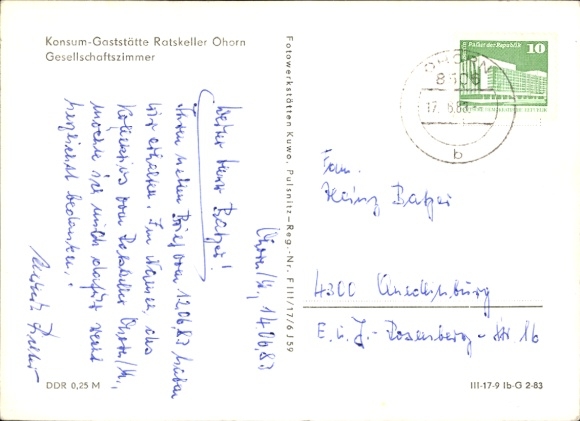 Konsum-Gaststätte Ratskeller Ohorn
Gesellschaftszimmer
Ohorn/K., 14.06.83
Werter Herr Balzer!
Ihren netten Brief vom 12.06.83 haben
wir erhalten. Im Namen des
Kollektivs vom Ratskeller Ohorn/K.,
möchte ich mich dafür recht
herzlichst bedanken.
DDR 0,25 M
Fotowerkstätten Kuwo, Pulsnitz – Reg.-Nr. F III/17/6 J 59
DDR Palast der Republik 10
OHORN
8506
17. 6. 83
b
Fam.
Heinz Balzer
4300 Quedlinburg
E. u. J.-Rosenberg-Str. 16
III-17-9 Ib-G 2-83